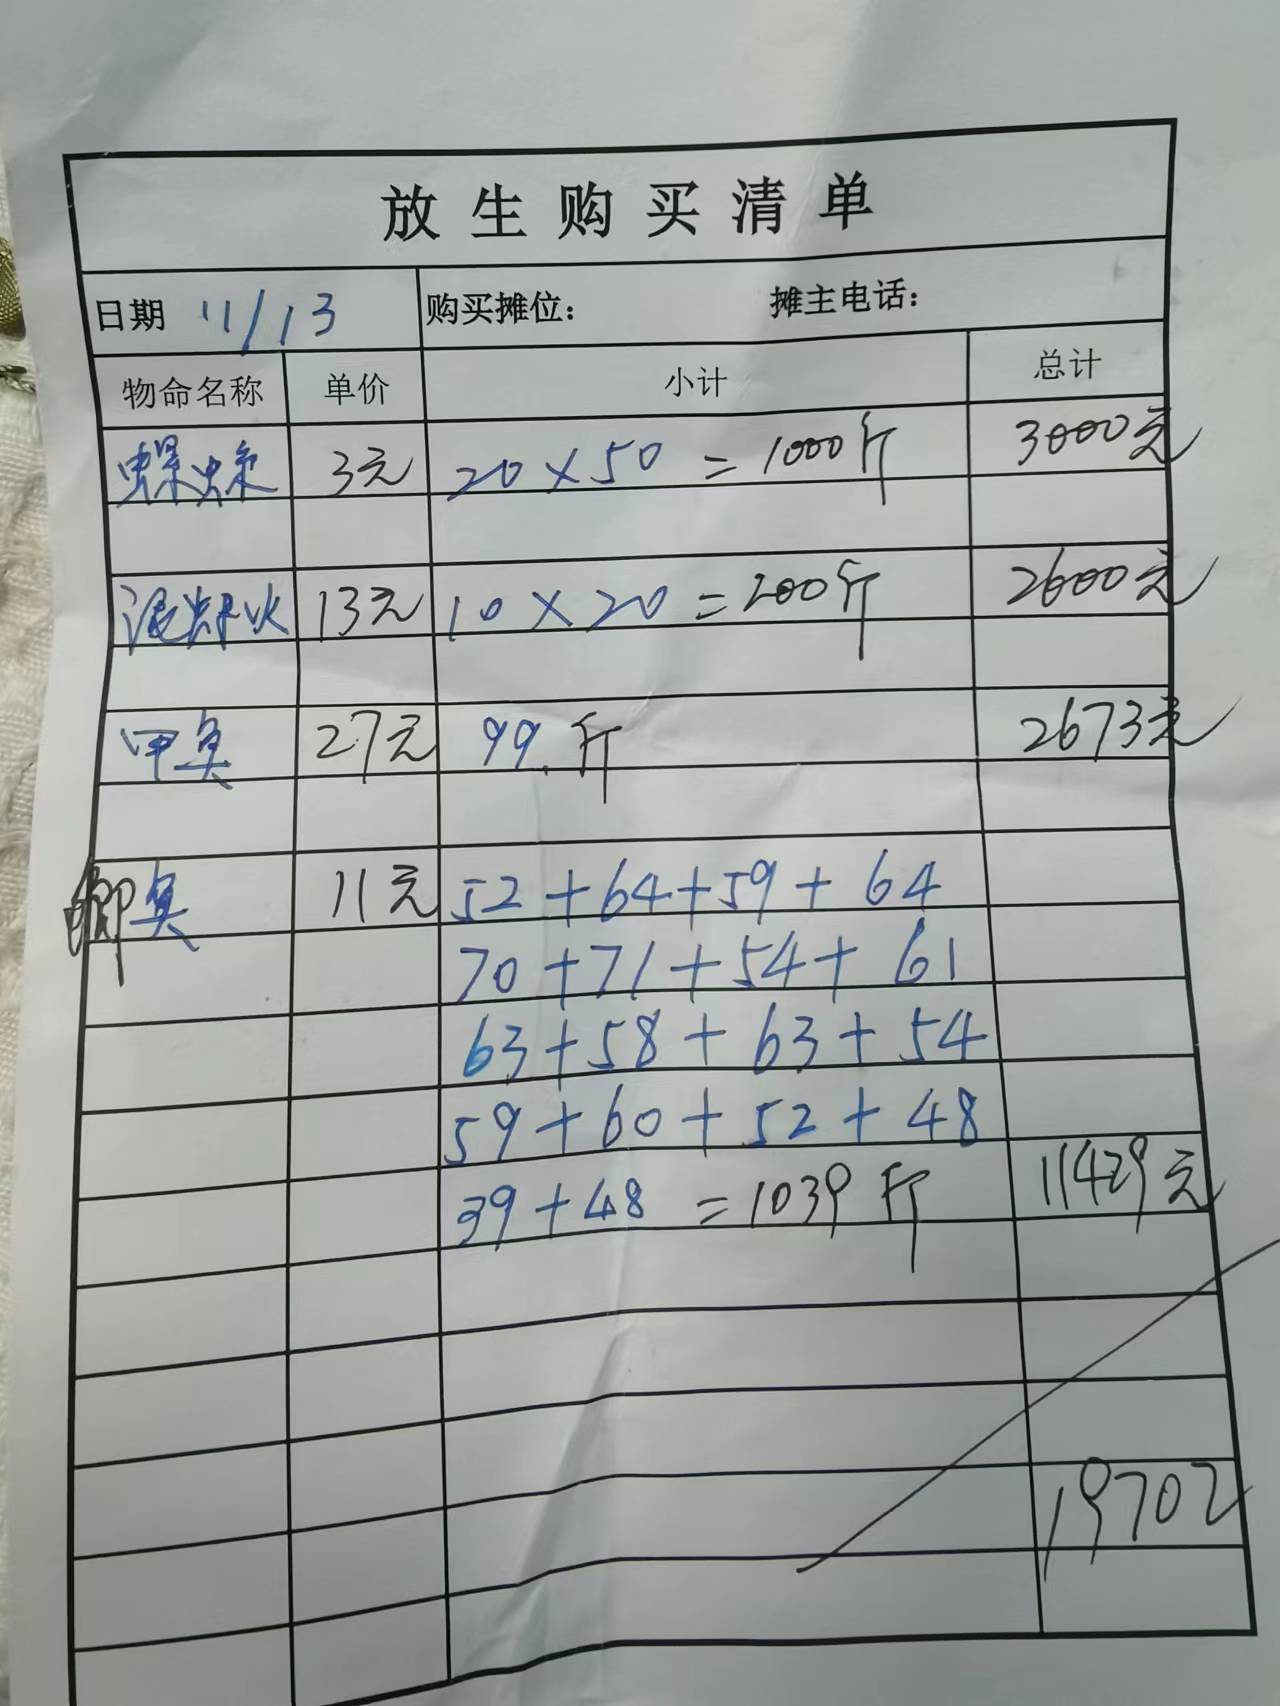 放生购买清单
日期 11/13 购买摊位： 摊主电话：
物命名称 单价 小计 总计
螺蛳 3元 20×50=1000斤 3000元
泥鳅 13元 10×20=200斤 2600元
甲鱼 27元 99.斤 2673元
鲫鱼 11元 52+64+59+64
70+71+54+61
63+58+63+54
59+60+52+48
39+48=1039斤 11429元
19702